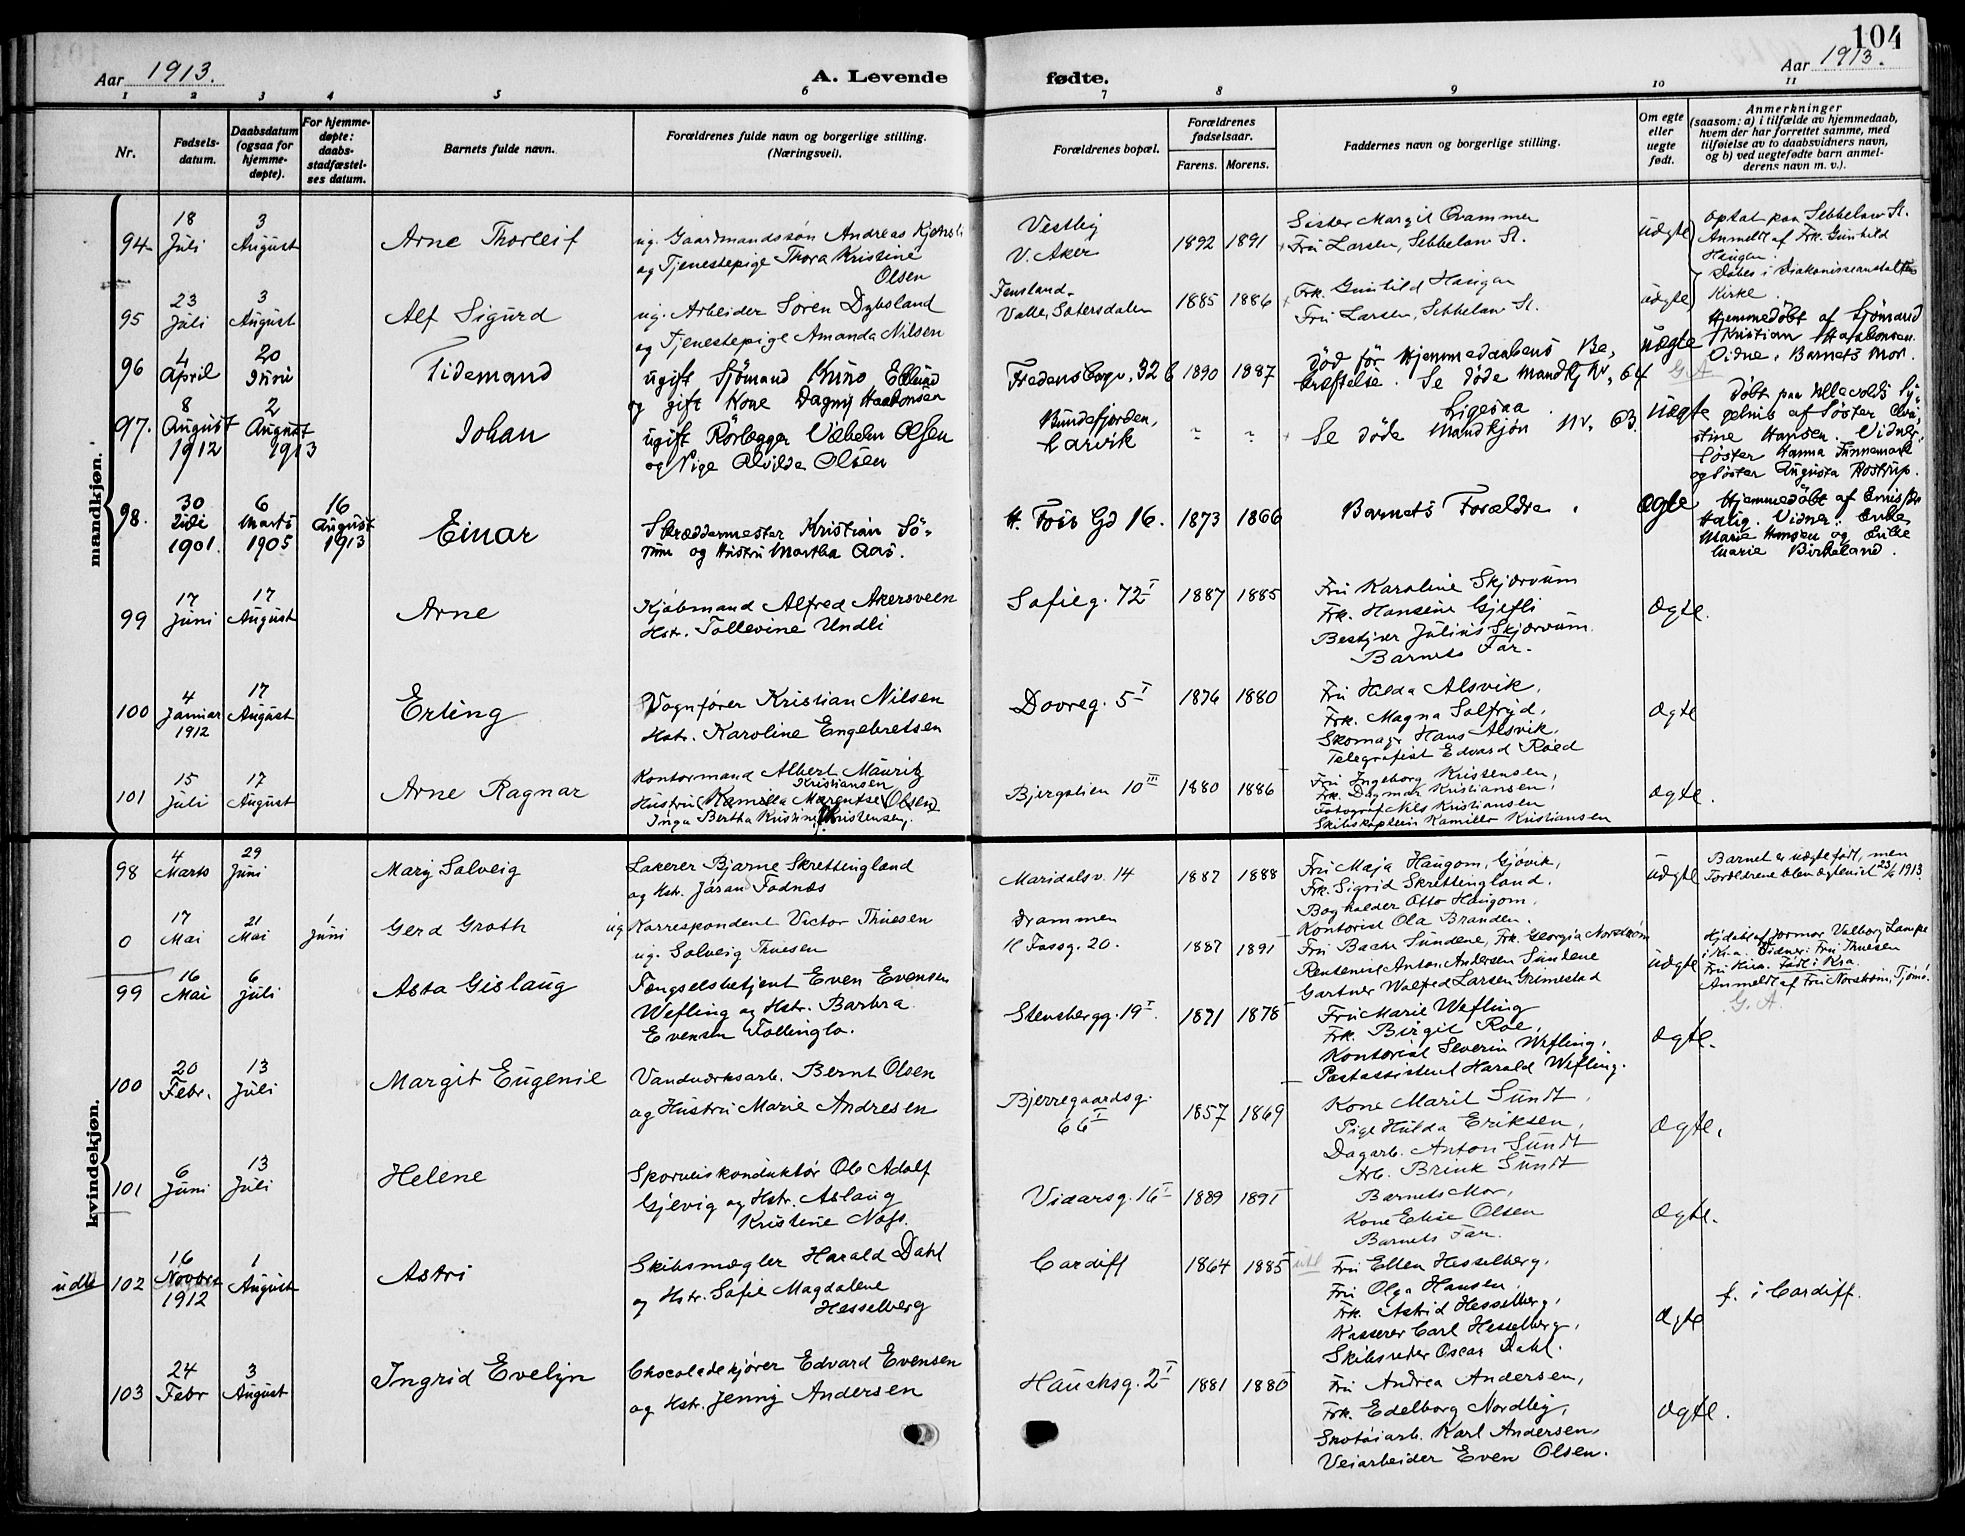 104
Aar 1913.
A. Levende fødte.
Aar 1913.
1 2 3 4 5 6 7 8 9 10 11
Nr.
Fødsels-
datum.
Daabsdatum
(ogsaa for
hjemme-
døpte).
For hjemme-
døpte:
daabs-
stadfæstel-
ses datum.
Barnets fulde navn.
Forældrenes fulde navn og borgerlige stilling.
(Næringsvei).
Forældrenes bopæl.
Forældrenes
fødselsaar.
Farens. Morens.
Faddernes navn og borgerlige stilling.
Om egte
eller
uegte
født.
Anmerkninger
(saasom: a) i tilfælde av hjemmedaab,
hvem der har forrettet samme, med
tilføielse av to daabsvidners navn,
og b) ved uegtefødte barn anmel-
derens navn m. v.).
mandkjøn.
94.
18
Juli
3
August
Arne Thorleif
ug. Gaardmandssøn Andreas
og Tjenestepige Thora Kristine
Olsen
Vestby
V. Aker
1892 1891
Sister Margit Qvammen
Fru Larsen, Sebbelow St.
uægte
Optat paa Sebbelow St.
Anmeldt af Frk. Gunhild
Haugen.
Døbes i Diakonisseanstaltens
Kirke.
95
23
Juli
3
August
Alf Sigurd
ug. Arbeider Søren Dybsland
og Tjenestepige Amanda Nilsen
Valle, Sætersdalen
1885 1886
Frk. Gunhild Haugen
Fru Larsen, Sebbelow St.
uægte
96
4
April
20
Juni
Tidemand
ugift Sjømand
og gift Kone Dagny Haakonsen
Fredensborgv. 32 b
1890 1887
Død før Hjemmedaabens Be-
kræftelse. Se døde Mandkj Nr. 64
uægte
G.A
Hjemmedøbt af Sjømand
Kristian Haakonsen.
Vidne, Barnets Mor.
97.
8
August
1912
2
August
1913
Johan
ugift Rørlægger Vilhelm Olsen
og Pige Alvilda Olsen
Bundefjorden,
Larvik
" "
Ligesaa
Se døde Mandkjøn Nr. 63.
uægte
Døbt paa Ullevolds Sy-
gehus af Søster
Hansen. Vidner,
Søster Hanna Finnemark
og Søster Augusta Rostrup.
98.
30
Juli
1901.
6
Marts
1905
16
August
1913
Einar
Skræddermester Kristian Sö-
rum og Hustru Martha Aas.
H. Tofts Gd 16.
1873 1866
Barnets Forældre.
ægte
Hjemmedøbt af
Vidner: Enke
Marie Hansen og Enke
Marie Birkeland.
99
17
Juni
17
August
Arne
Kjøbmand Alfred Akersveen
Hstr. Tollevine Undli
Sofieg. 72 I
1887 1885
Fru Karoline Skjærvum
Frk. Hansine Gjefli
Bestyrer Julius Skjærvum.
Barnets Far.
ægte.
100
4
Januar
1912
17
August
Erling
Vognfører Kristian Nilsen
Hstr. Karoline Engebretsen
Dovreg. 5 I
1876 1880
Fru Hilda Alsvik,
Frk. Magna Solfryd,
Skomagr Hans Alsvik,
Telegrafist Edvard Roed
ægte
101
15
Juli
17
August
Arne Ragnar
Kontormand Albert Mauritz
Kristiansen
Hustru (Kamilla Margrethe Olsen)
Inga Bertha Kristine Christensen.
Bjergslien 10 III
1880 1886
Fru Ingeborg Kristensen,
Frk. Dagmar Kristiansen,
Fotograf Nils Kristiansen
Skibskaptein Kamillo Kristiansen
ægte.
kvindekjøn.
98
4
Marts
29
Juni
Mary Solveig
Lakerer Bjarne Skrettingland
og Hstr. Jøran Fodnæs
Maridalsv. 14
1887 1888
Fru Maja Haugom, Gjøvik,
Frk. Sigrid Skrettingland.
Bogholder Otto Haugom,
Kontorist Ola Branden.
uægte
Barnet er uægte født, men
Forældrene blev ægteviet 23/6 1913.
0
17
Mai
21
Mai
1
Juni
Gerd Groth
ug Korrespondent Victor Thuesen
ug. Solveig Thuesen
Drammen
Kl Fossg. 20.
1887 1891
Fru Bache Sundene, Frk. Georgia Norström
Rentenist Anton Andersen Sundene
Gartner Walfred Larsen Grimestad
uægte
Hjdøbt af Jormor Valborg Lampe
i Kra. Vidner: Fru Thuesen
Fru Kira. Født i Kra.
Anmeldt af Fru Norström, Tjømö.
G. A.
99
16
Mai
6
Juli
Asta Gislaug
Fængselsbetjent Even Evensen
Wefling og Hstr. Barbra
Evensen Follinglo.
Stensbergg. 19 I.
1871 1878
Fru Marie Wefling
Frk. Birgit Roe,
Kontorist Severin Wefling,
Postassistent Harald Wefling.
ægte.
100
20
Febr.
13
Juli
Margit Eugenie
Vandværksarb. Bernt Olsen
og Hustru Marie Andresen
Bjerregaardsg.
66 I
1857 1869
Kone Marit Sundt,
Pige Hulda Eriksen,
Dagarb. Anton Sundt
Arb. Brink Sundt
ægte.
101
6
Juni
13
Juli
Helene
Sporveiskonduktør Ole Adolf
Gjevig og Hstr. Aslaug
Kristine Næss.
Vidarsg. 16 I
1889 1891
Barnets Mor,
Kone Elise Olsen
Barnets Far.
ægte.
udl
102
16
Novbr
1912
1
August
Astri
Skibsmægler Harald Dahl
og Hstr. Sofie Magdalene
Hesselberg
Cardiff
1864 1885
utl
Fru Ellen Hesselberg,
Fru Olga Hansen,
Frk. Astrid Hesselberg,
Kasserer Carl Hesselberg,
Skibsreder Oscar Dahl.
ægte
f. i Cardiff.
103
24
Febr
3
August
Ingrid Evelyn
Chocoladekjører Edvard Evensen
og Hstr. Jenny Andersen
Hauchsg. 2 I
1881 1880
Fru Andrea Andersen,
Frk. Edelborg Nordby,
Skotøiarb. Karl Andersen,
Veiarbeider Even Olsen.
ægte.